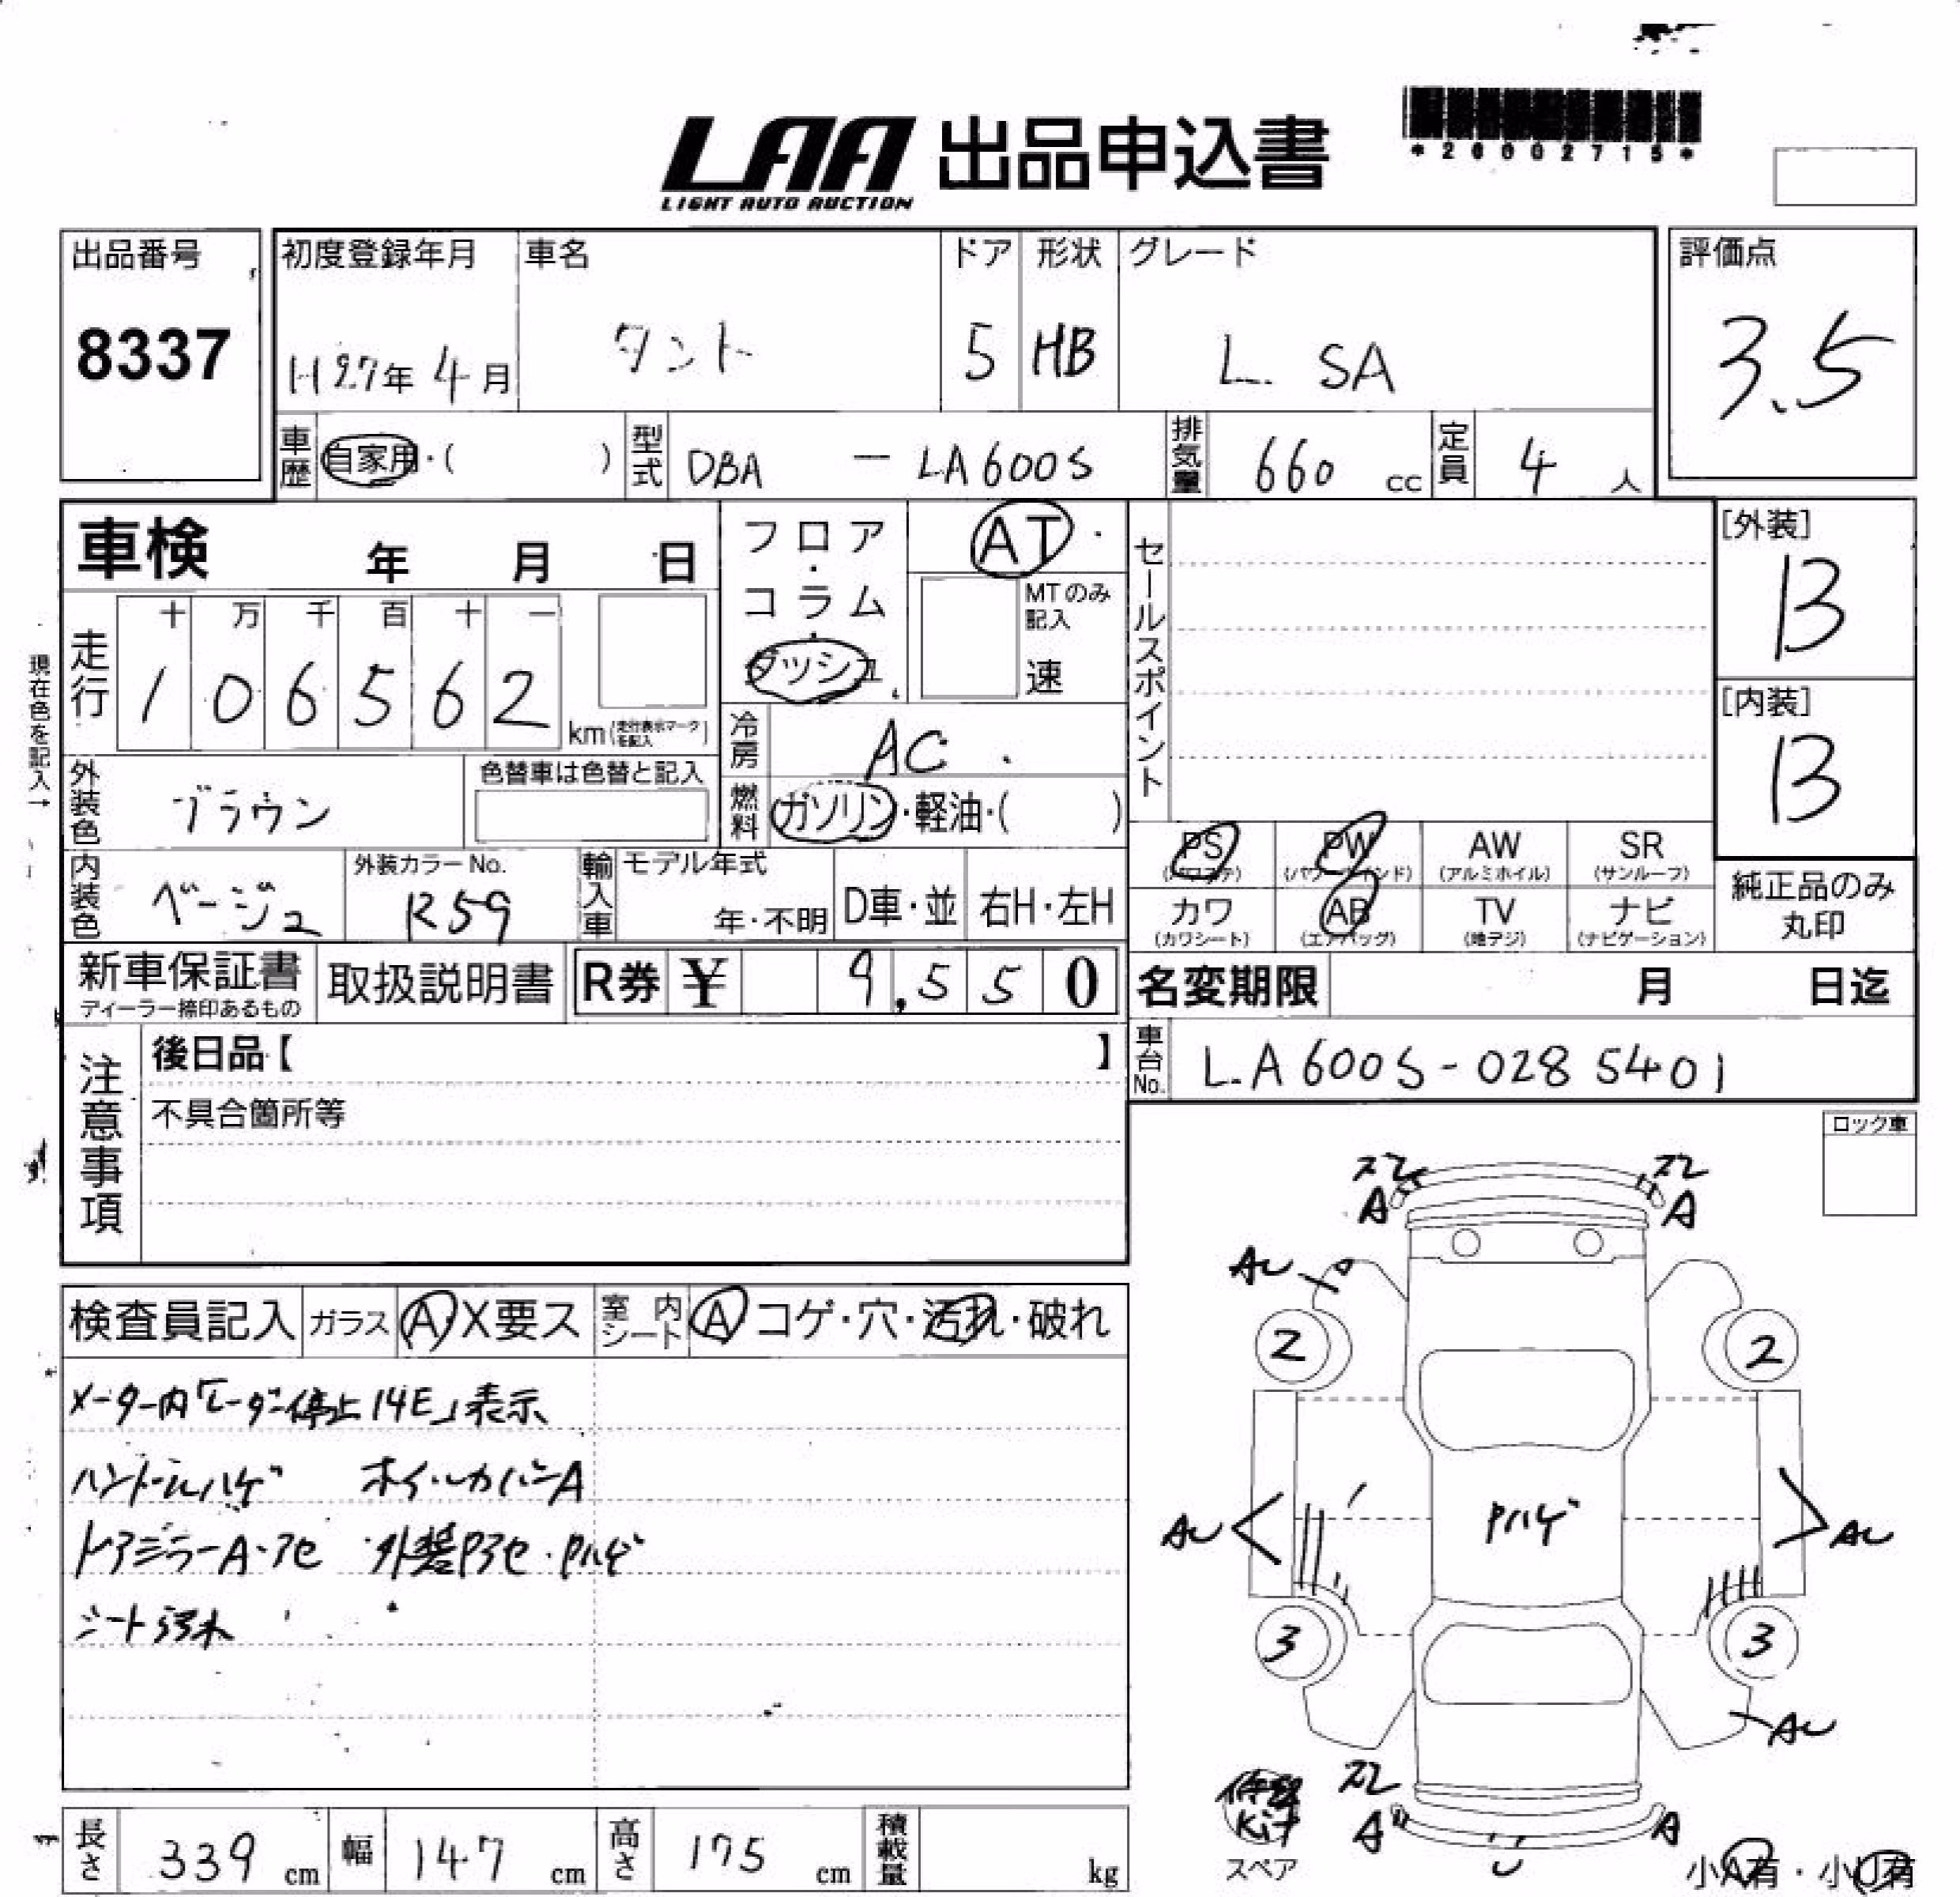 LAA 出品申込書
LIGHT AUTO AUCTION
*26002715*
出品番号 初度登録年月 車名 ドア 形状 グレード 評価点
8337 H27年 4月 タント 5 HB L SA 3.5
車歴 自家用・( ) 型式 DBA - LA600S 排気量 660 cc 定員 4 人
車検 年 月 日 フロア・コラム・ダッシュ AT・ セールスポイント [外装]
B
MTのみ記入 速
現在色を記入→
走行 十 万 千 百 十 一
1 0 6 5 6 2 km(走行表示マークを記入)
[内装]
B
冷房 AC
外装色 ブラウン 色替車は色替と記入 燃料 ガソリン・軽油・( )
PS PW AW SR
(パワステ) (パワーウインド) (アルミホイル) (サンルーフ)
内装色 ベージュ 外装カラーNo. R59 輸入車 モデル年式 年・不明 D車・並 右H・左H
カワ AB TV ナビ
(カワシート) (エアバッグ) (地デジ) (ナビゲーション)
純正品のみ
丸印
新車保証書 取扱説明書 R券 ¥ 9,550 名変期限 月 日迄
ディーラー捺印あるもの
注意事項 後日品【 】 車台No. LA600S-0285401
不具合箇所等
ロック車
スレ スレ
A A
AU
2 2
検査員記入 ガラス A X要ス 室内シート A コゲ・穴・汚れ・破れ
メーター内「レーダー停止14E」表示
ハンドルハゲ ホイールカバーA
ドアミラーA・アセ 外装Pアセ・Pハゲ
シート汚れ
AU Pハゲ AU
3 3
AU
スレ
A A
U
修理
Kit
スペア
小A有・小U有
長さ 339 cm 幅 147 cm 高さ 175 cm 積載量 kg